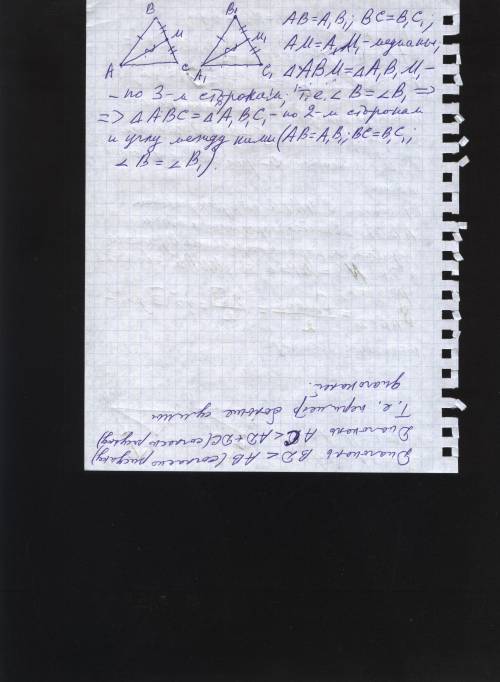 B
B₁
M
M₁
A
C
A₁
C₁
AB=A₁B₁; BC=B₁C₁;
AM=A₁M₁-медианы,
△ABM=△A₁B₁M₁-
- по 3-м сторонам, т.е. ∠B=∠B₁ =>
=> △ABC=△A₁B₁C₁-по 2-м сторонам
и углу между ними (AB=A₁B₁; BC=B₁C₁;
∠B=∠B₁).
Диагональ BD<AB (согласно рисунку)
Диагональ AC<AD+DC (согласно рисунку)
Т.е. периметр больше суммы
диагоналей.